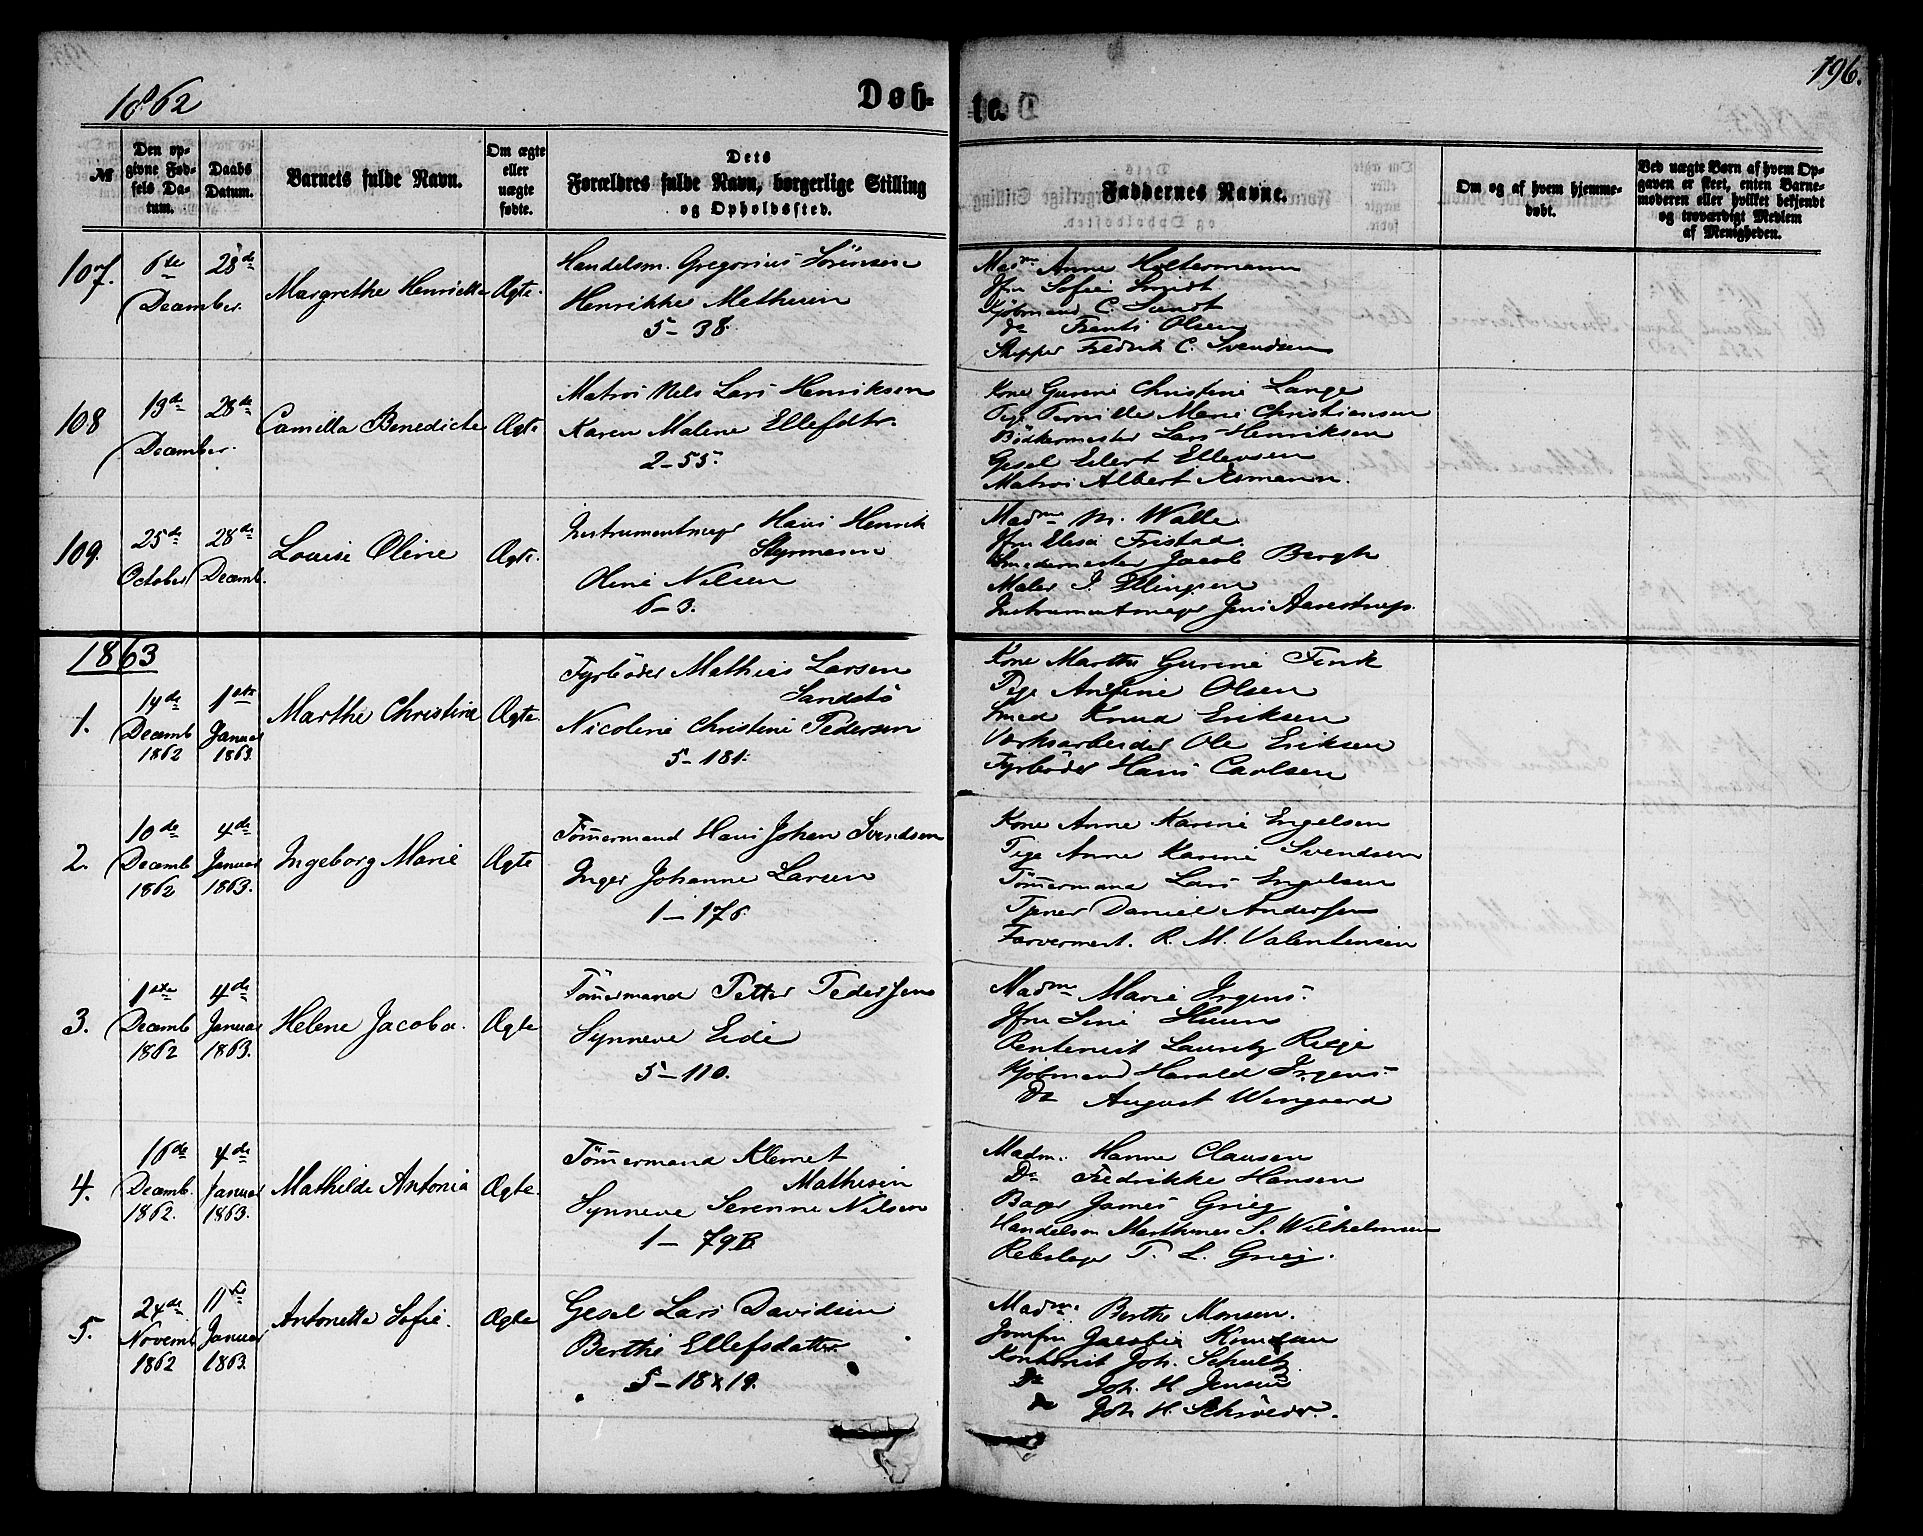 1862
Døb-
te.
196.
№
Den op-
givne Fød-
sels Da-
tum.
Daabs
Datum.
Barnets fulde Navn.
Om ægte
eller
uægte
fødte.
Dets
Forældres fulde Navn, borgerlige Stilling
og Opholdssted.
Faddernes Navne.
Om og af hvem hjemme-
døbt.
Ved uægte Børn af hvem Op-
gaven er skeet, enten Barne-
moderen eller hvilket bekjendt
og troværdigt Medlem
af Menigheden.
107. 6te 28de
December.
Margrethe Henriette Ægte.
Handelsm. Gregorius Sörensen
Henrikke Methuin
5-38.
Madm Anne Holtermann
Jfru Sofie Smidt
Kjöbmand C. Sundt
do Frants Olsen
Skipper Fredrik C. Svendsen
108 19de 28de
December.
Camilla Benedicte Ægte
Matros Nels Lars Henriksen
Karen Malene Ellefdtr.
2-55.
Kone Gurine Christine Lange
Pige Pernille Marie Christiansen
Bödkermester Lars Henriksen
Gesel Eilert Ellevsen
Matros Albert Asmann.
109. 25de 28de
October Decemb.
Louise Oline Ægte.
Instrumentmager Hans Henrik
Styrmann
Oline Nilsen
6-3.
Madm M. Walle
Jfru Elisa Fristad.
Smedemester Jacob Bergh
Maler J. Ellingsen
Instrumentmager Jens Aarestrup.
1863
1. 14de 1ste
Decemb Januar
1862 1863.
Marthe Christine Ægte.
Fyrböder Mathias Larsen
Sandstö
Nicoline Christine Pedersen
5-181.
Kone Marthe Gurine Fink
Pige Antine Olsen
Smed Knud Eriksen
Værksarbeider Ole Eriksen
Fyrböder Hans Carlsen
2. 10de 4de
Decemb Januar
1862 1863.
Ingeborg Marie Ægte
Tömmermand Hans Johan Svendsen
Inger Johanne Larsen
1-176.
Kone Anne Karine Engelsen
Pige Anne Karine Svendsen
Tömmermand Lars Engelsen
Tjener Daniel Andersen
Farvermest. R. M. Valentinsen
3. 1ste 4de
Decemb Januar
1862 1863.
Helene Jacoba. Ægte
Tömmermand Petter Pedersen
Synneve Eide
5-110.
Madm Marie Irgens.
Jfru Sine
Kontorist Lauritz
Kjöbmand Harald Irgens.
Do August Wingaard
4. 16de 4de
Decemb. Januar
1862. 1863.
Mathilde Antonia Ægte.
Tömmermand Klemet
Mathisen
Synneve Serenne Nilsen
1-79B
Madm. Hanne Clausen
Do Fredrikke Hansen
Bager James Grieg
Handelsm Marthines S. Wilhelmsen
Rebslager T. L. Grieg.
5. 24de 11te
Novemb Januar
1862 1863.
Antonette Sofie. Ægte
Gesel Lars Davidsen
Berthe Ellefsdatter
5-18&19.
Madm. Berthe Monsen.
Jomfru Jacobia Knudsen
Kontorist Joh. Schultz
Do Joh. H. Jensen
do Joh H. Schröder.